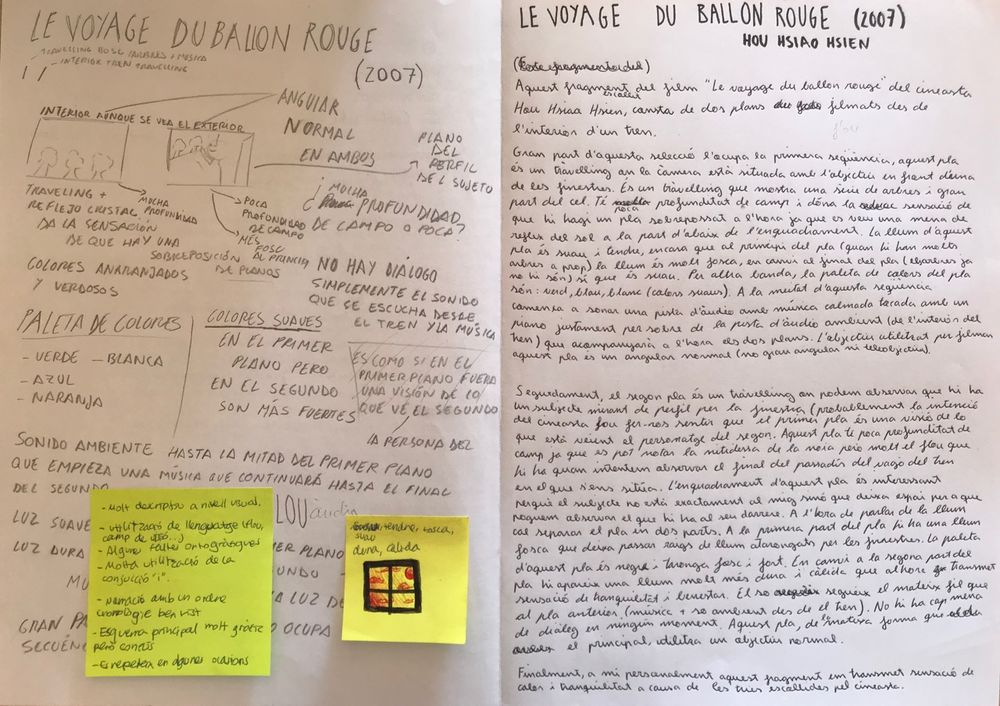 LE VOYAGE DU BALLON ROUGE
(2007)
TRAVELLING BOSC /ARBRES + MÚSICA
INTERIOR TREN TRAVELLING
INTERIOR AUNQUE SE VEA EL EXTERIOR
ANGULAR
NORMAL
EN AMBOS
PLANO
DEL
PERFIL
DEL SUJETO
TRAVELING +
REFLEJO CRISTAL
DA LA SENSACIÓN
DE QUE HAY UNA
SOBREPOSICIÓN
DE PLANOS
MOCHA
PROFUNDIDAD
POCA
PROFUNDIDAD
DE CAMPO
MÉS
FOSC
AL PRINCIPI
¿ MOCHA
PROFUNDIDAD
DE CAMPO O POCA?
COLORES ANARANJADOS
Y VERDOSOS
NO HAY DIÁLOGO
SIMPLEMENTE EL SONIDO
QUE SE ESCUCHA DESDE
EL TREN Y LA MÚSICA
PALETA DE COLORES
- VERDE - BLANCA
- AZUL
- NARANJA
COLORES SUAVES
EN EL PRIMER
PLANO PERO
EN EL SEGUNDO
SON MÁS FUERTES
ES COMO SI EN EL
PRIMER PLANO FUERA
UNA VISIÓN DE LO
QUE VÉ, EL SEGUNDO
LA PERSONA DEL
SONIDO AMBIENTE HASTA LA MITAD DEL PRIMER PLANO
QUE EMPIEZA UNA MÚSICA QUE CONTINUARÁ HASTA EL FINAL
DEL SEGUNDO
LUZ SUAVE
LUZ DURA
PRIMER PLANO
SEGUNDO
LUZ DE
GRAN
OCUPA
SECUÉNC
- Molt descriptiu a nivell visual.
- Utilització de llenguatge (flou,
camp de visió...)
- Algunes faltes ortogràfiques
- Molta utilització de la
conjucció "i".
- Narració amb un ordre
cronològic ben vist
- Esquerra principal molt gràfic
però concís
- Es repeteix en algunes ocasions
tendre, fosca,
suau
dura, càlida
LE VOYAGE DU BALLON ROUGE (2007)
HOU HSIAO HSIEN
Aquest fragment del film "Le voyage du ballon rouge" del cineasta
Hou Hsiao Hsien, consta de dos plans filmats des de
l'interior d'un tren.
Gran part d'aquesta selecció l'ocupa la primera seqüència, aquest pla
és un travelling on la camera està situada amb l'objectiu en front d'una
de les finestres. És un tràvelling que mostra una sèrie de arbres i gran
part del cel. Té poca profunditat de camp i dóna la sensació de
que hi hagi un pla sobreposat a l'hora ja que es veu una mena de
reflex del sol a la part d'abaix de l'enquadrament. La llum d'aquest
pla és suau i tendre, encara que al principi del pla (quan hi han molts
arbres a prop) la llum és molt fosca, en canvi al final del pla (els arbres ja
no hi són) sí que és suau. Per altra banda, la paleta de colors del pla
són: verd, blau, blanc (colors suaus). A la meitat d'aquesta seqüencia
comença a sonar una pista d'àudio amb música calmada tocada amb un
piano justament per sobre de la pista d'àudio ambient (de l'interior del
tren) que acompanyarà a l'hora els dos plans. L'objectiu utilitzat per filmar
aquest pla és un angular normal (no gran angular ni teleobjectiu).
Seguidament, el segon pla és un travelling on podem observar que hi ha
un subjecte mirant de perfil per la finestra (probablement la intenció
del cineasta fou fer-nos sentir que el primer pla és una visió de lo
que està veient el personatge del segon. Aquest pla té poca profunditat de
camp ja que es pot notar la nitidesa de la noia però molt el flou que
hi ha quan intentem observar el final del passadís del vagó del tren
en el que s'ens situa. L'enquadrament d'aquest pla és interessant
perquè el subjecte no està exactament al mig sinó que deixa espai per a que
poguem observar el que hi ha al seu darrere. A l'hora de parlar de la llum
cal separar el pla en dos parts. A la primera part del pla hi ha una llum
fosca que deixa passar raigs de llum ataronjats per les finestres. La paleta
d'aquest pla és negre i taronja fosc i fort. En canvi a la segona part del
pla hi apareix una llum molt més dura i càlida que alhora transmet
sensació de tranquilitat i benestar. El so segueix el mateix fil que
al pla anterior (música + so ambient des de el tren). No hi ha cap mena
de diàleg en ningún moment. Aquest pla, de la mateixa forma que
el principal, utilitza un objectiu normal.
Finalment, a mi personalment aquest fragment em transmet sensació de
calor i tranquilitat a causa de les tries escollides pel cineasta.